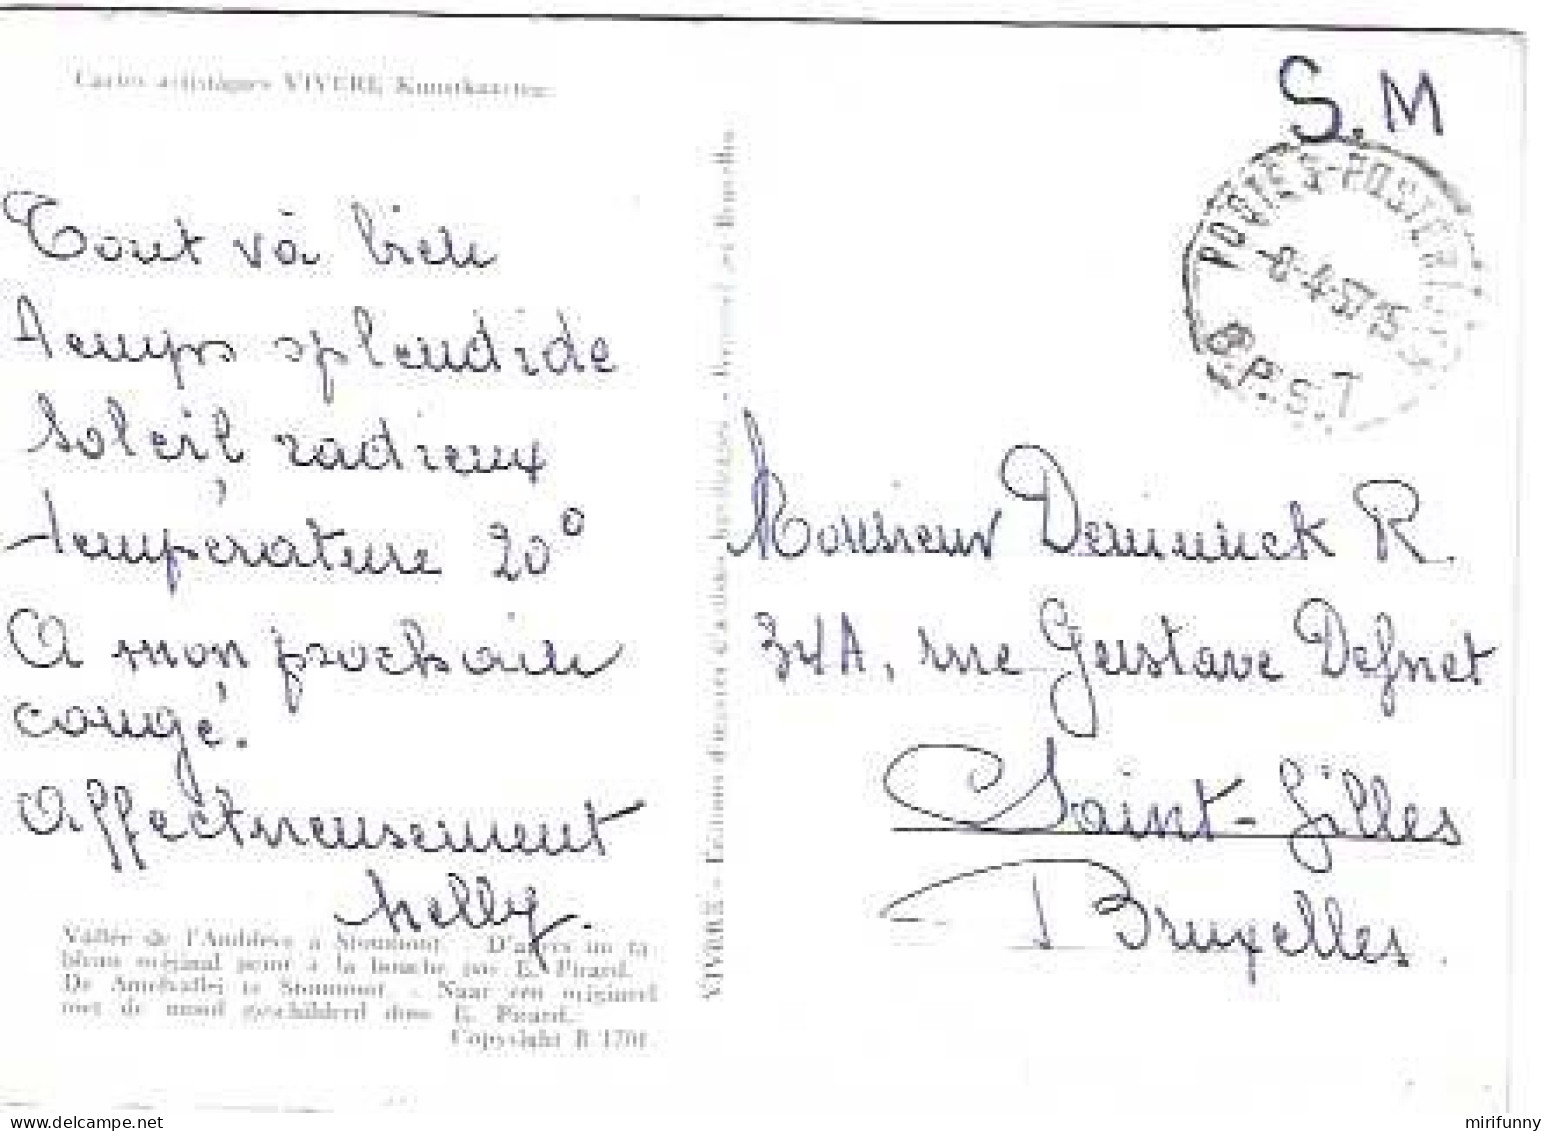 Cartes artistiques VIVERE Kunstkaarten
S.M
POSTES-POSTERIJEN
-8-4-57 15
B.P.S.7
Tout và bien
temps splendide
soleil radieux
température 20°
A mon prochain
congé.
Affectueusement
Nelly.
Monsieur Deminnck R.
34A, rue Gustave Defnet
Saint-Gilles
Bruxelles.
Vallée de l'Amblève à Stoumont. - D'après un ta-
bleau original peint à la bouche par E. Pirard.
De Amelvallei te Stoumont. - Naar een origineel
met de mond geschilderd door E. Pirard.
Copyright B 1701
VIVERE - Editions d'œuvres d'artistes
mirifunny